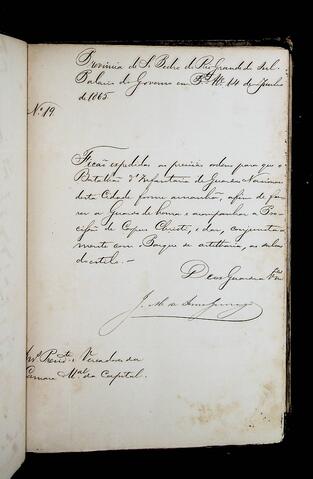 Provincia de S. Pedro do Rio Grande do Sul
Palacio do Governo em P. Al. 14 de Junho
de 1865
N. 19.
Ficão expedidas as precisas ordens para que o
Batalhão d'Infantaria da Guarda Nacional
desta Cidade forme amanhã, afim de fazer
a Guarda de honra e acompanhar a Procissão
de Corpus Christi, e dar, conjuntamente
com o Parque de artilharia, as salvas
do estilo.—
Deos Guarde a V.
Vereadores da
Camara M.al da Capital.